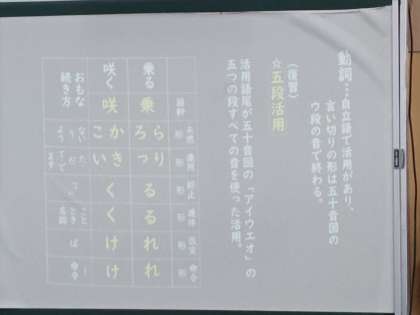 動詞…自立語で活用があり、
言い切りの形は五十音図の
ウ段の音で終わる。
(復習)
☆五段活用
活用語尾が五十音図の「アイウエオ」の
五つの段すべての音を使った活用。
語幹 未然形 連用形 終止形 連体形 仮定形 命令形
乗る 乗 ら ろ り っ る る れ れ
咲く 咲 か こ き い く く け け
おもな続き方 ない う よう ば 命令